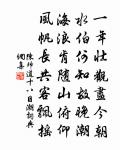 一年壯觀盡今朝
水伯何知故晚潮
海浪肯隨山俯仰
風帆長共客飄搖
陳師道十八日潮詞典
網